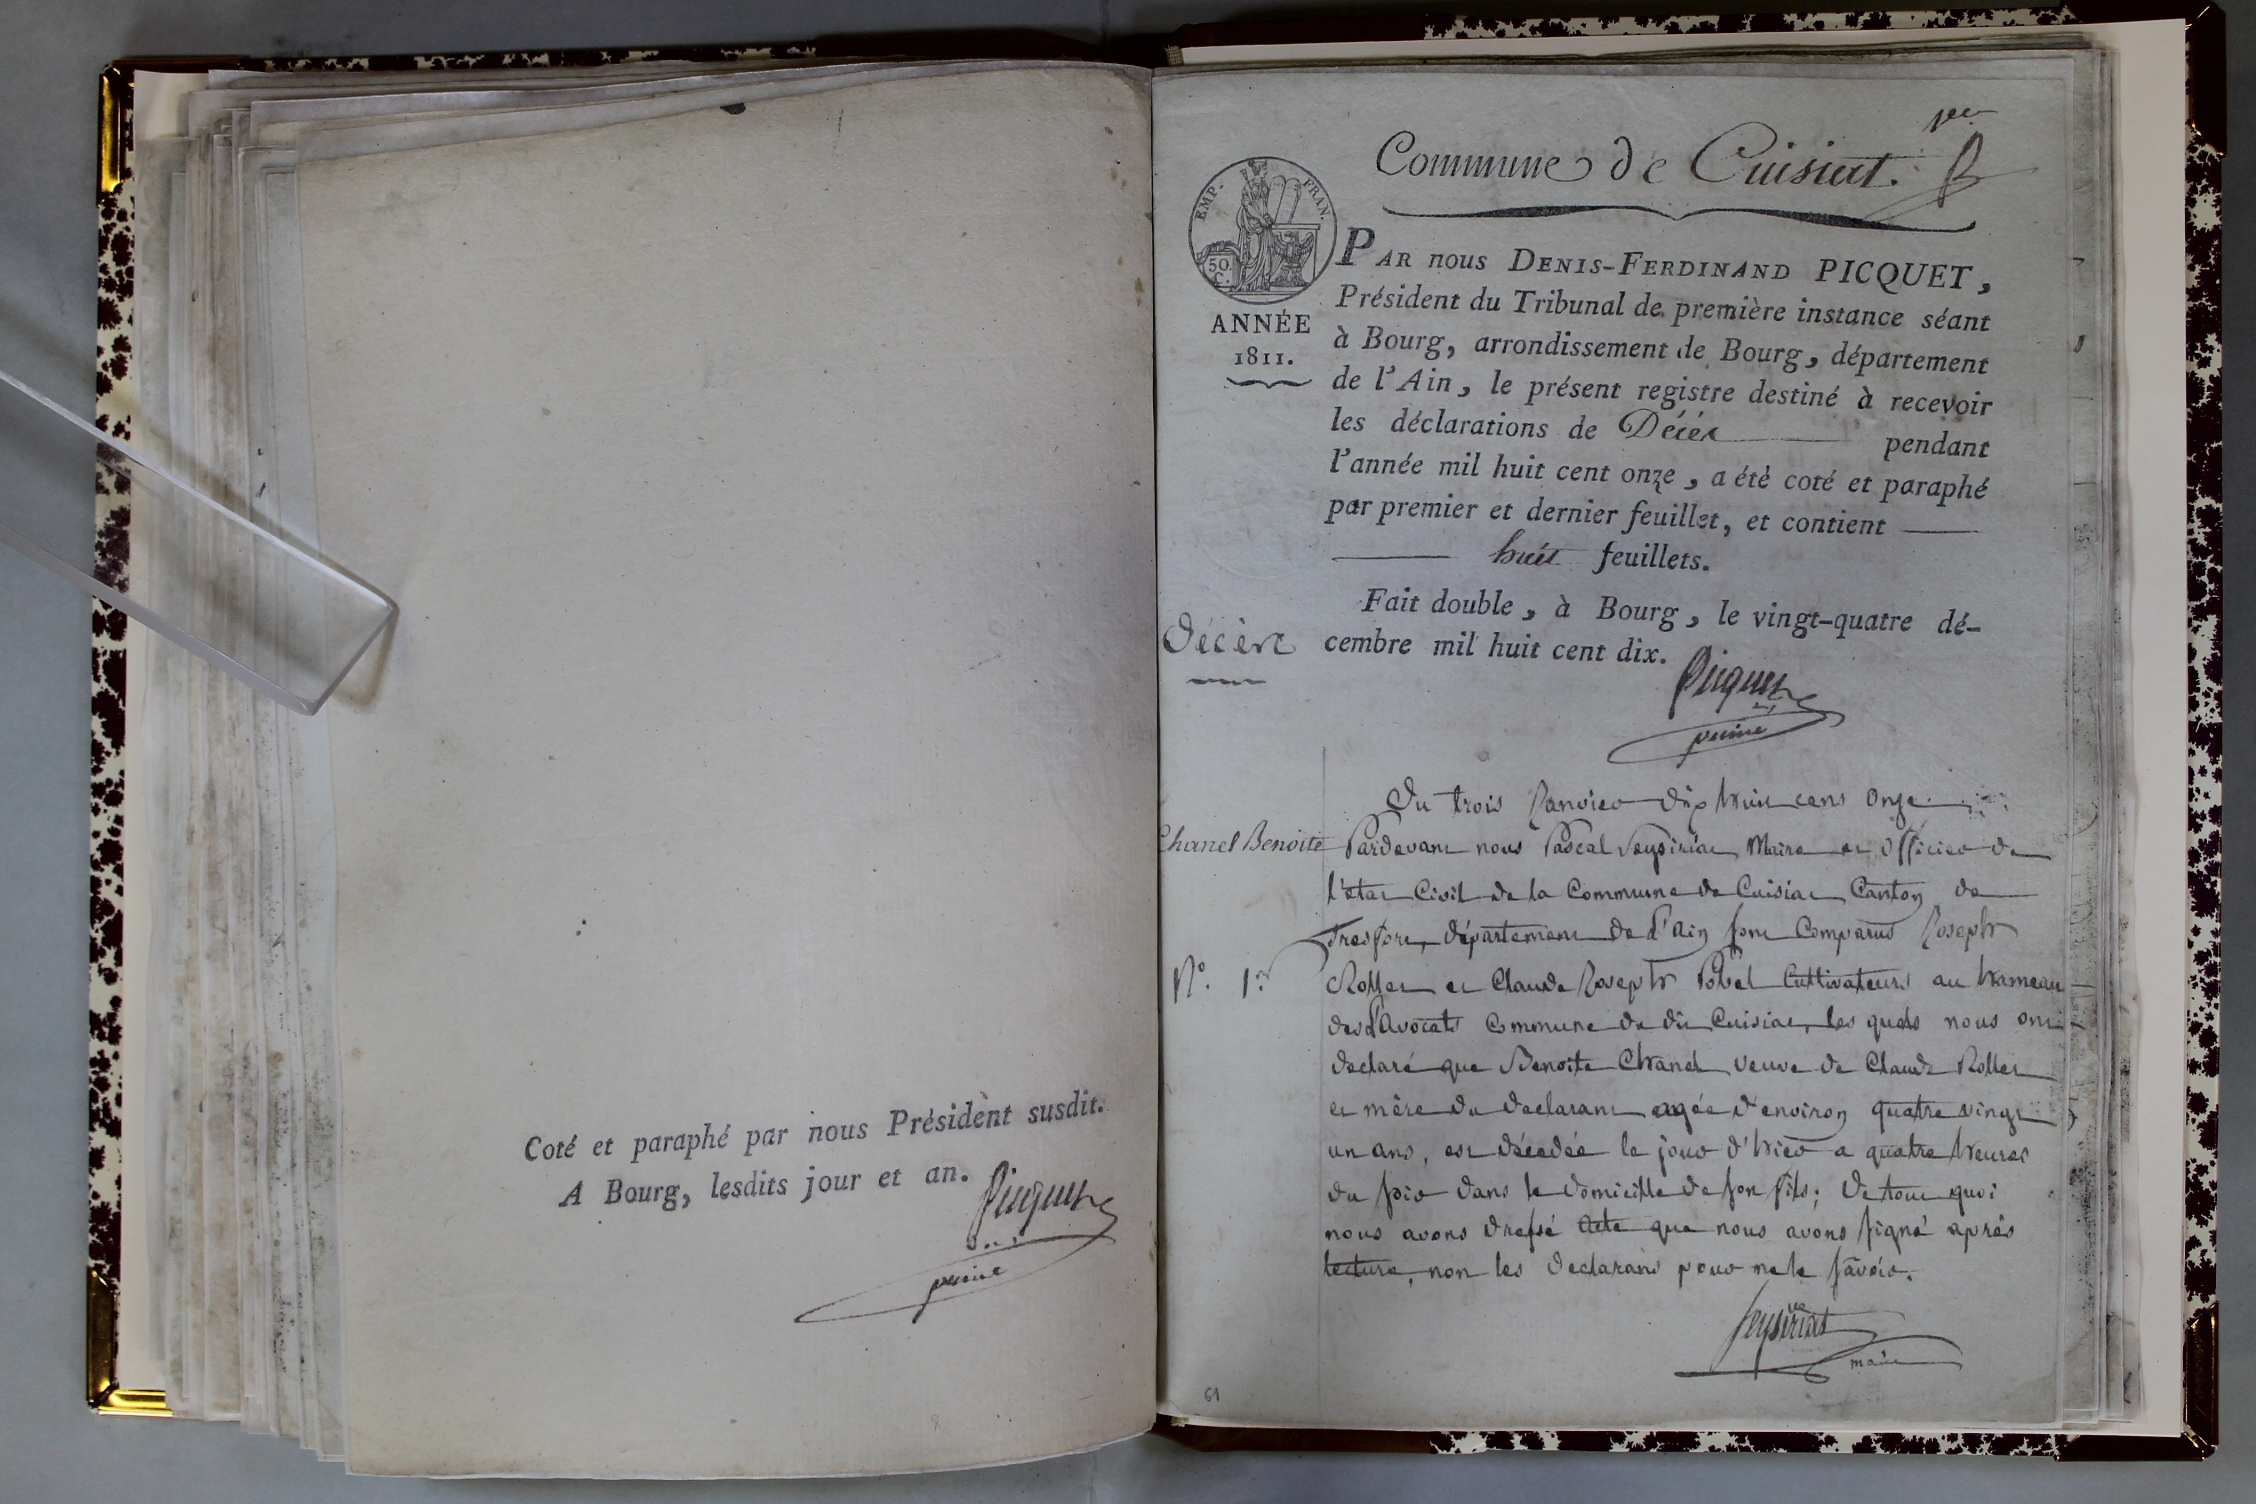 Coté et paraphé par nous Président susdit.
A Bourg, lesdits jour et an.
Picquet
1er
Commune de Cuisiat.
EMP. FRAN.
50 C.
ANNÉE
1811.
PAR nous DENIS-FERDINAND PICQUET,
Président du Tribunal de première instance séant
à Bourg, arrondissement de Bourg, département
de l'Ain, le présent registre destiné à recevoir
les déclarations de Décès pendant
l'année mil huit cent onze, a été coté et paraphé
par premier et dernier feuillet, et contient
huit feuillets.
Fait double, à Bourg, le vingt-quatre dé-
cembre mil huit cent dix.
Picquet
Décès
Du trois Janvier dix huit cent onze
Chanel Benoite
Pardevant nous Pascal Seysiriat Maire et officier de
l'etat Civil de la Commune de Cuisiat Canton de
Tresfort, département de l'Ain sont Comparus Joseph
N.o 1.er
Rollet et Claude Joseph Pobel Cultivateurs au hameau
des Avocats Commune de dit Cuisiat, les quels nous ont
declaré que Benoite Chanel veuve de Claude Rollet
et mère du declarant agée d'environ quatre vingt
un ans, est décedée le jour d'hier a quatre heures
du soir dans le domicille de son fils; de tout quoi
nous avons dressé acte que nous avons signé après
lecture, non les declarans pour ne le savoir.
Seysiriat
maire
61